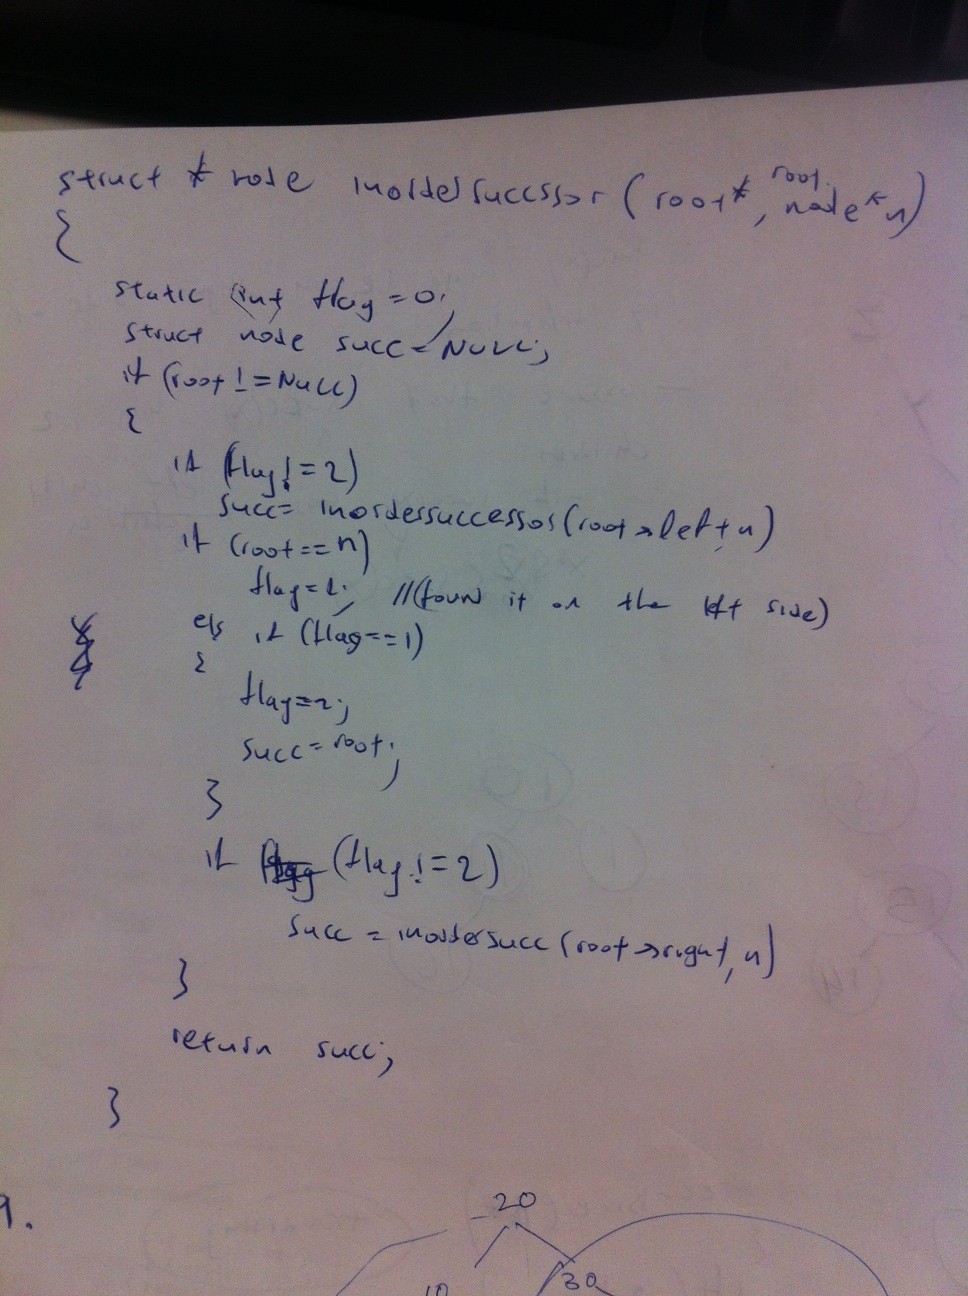 struct * node inordersuccssor (root* root, node* n)
{
static int flag = 0;
struct node succ = NULL;
if (root != NULL)
{
if (flag != 2)
succ = inordersuccessor(root->left, n)
if (root == n)
flag = 1; //(found it on the left side)
els if (flag == 1)
{
flag = 2;
succ = root;
}
if (flag != 2)
succ = inordersucc (root->right, n)
}
return succ;
}
9.
20
10 30